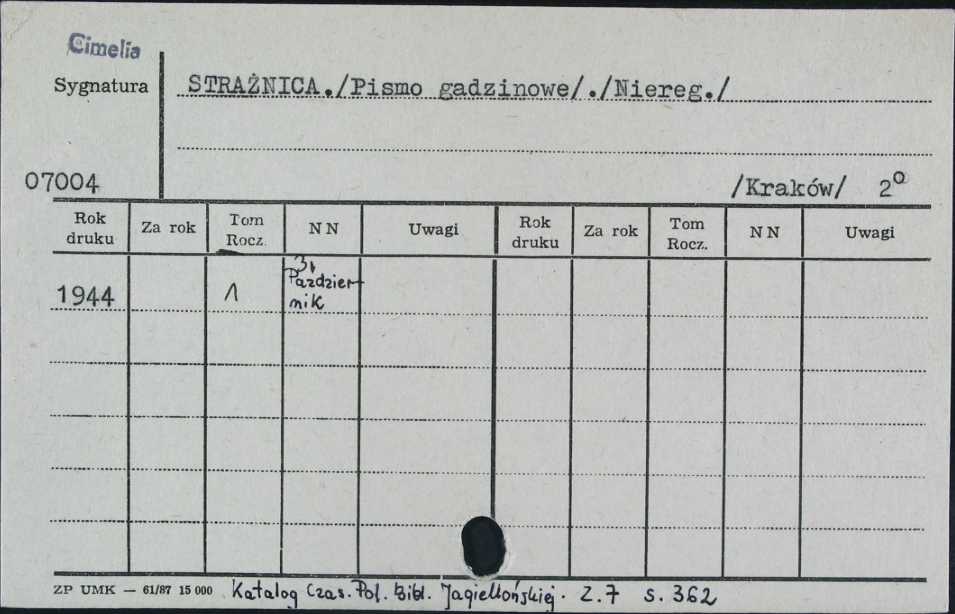 Cimelia
Sygnatura STRAŻNICA./Pismo gadzinowe/./Niereg./
07004 /Kraków/ 2o
Rok druku Za rok Tom Rocz. NN Uwagi Rok druku Za rok Tom Rocz. NN Uwagi
1944 1 3, Październik
ZP UMK — 61/87 15 000 Katalog Czas. Pol. Bibl. Jagiellońskiej. Z.7 s. 362